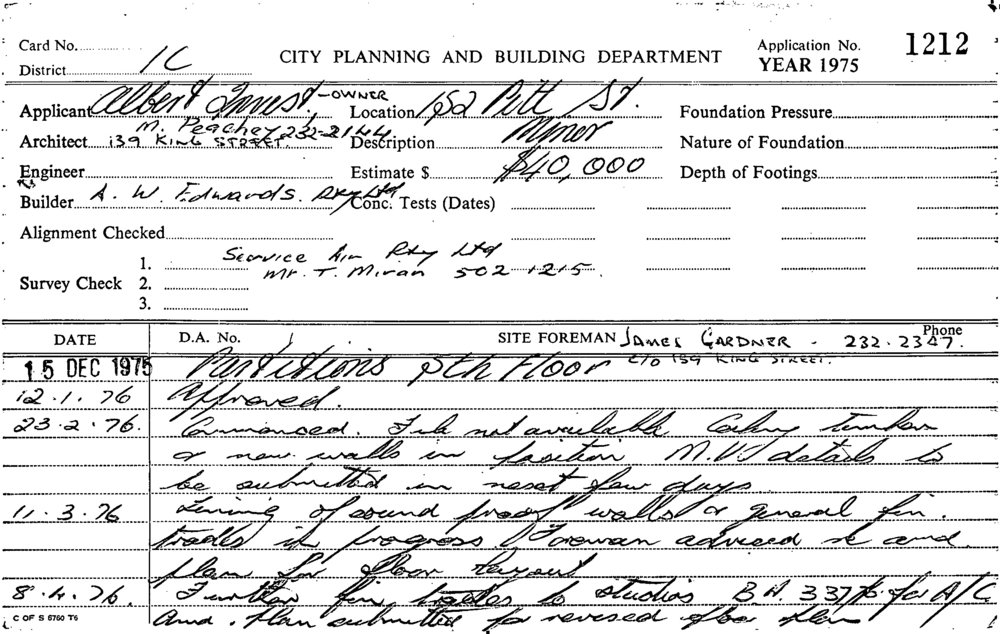 Card No. CITY PLANNING AND BUILDING DEPARTMENT Application No. 1212
District 1C YEAR 1975
Applicant Albert Invest. -OWNER Location 152 Pitt St. Foundation Pressure
M. Peachey 232-2144
Architect 139 KING STREET. Description Nature of Foundation
Engineer Estimate $ $40,000 Depth of Footings
Builder A. W. Edwards. Pty Ltd Conc. Tests (Dates)
Alignment Checked
Survey Check 1. Service Air Pty Ltd
2. Mr. T. Miran 502 1215.
3.
DATE D.A. No. SITE FOREMAN JAMES GARDNER - Phone 232.2347.
C/O 139 KING STREET.
15 DEC 1975 Partitions 5th Floor
12.1.76 Approved.
23.2.76. Commenced. File not available Ceiling timber
& new walls in position M.V. details to
be submitted in next few days
11.3.76 Lining of sound proof walls & general fin.
trades in progress Foreman advised re amd.
plan for floor layout
8.4.76. Further fin trades to studios B.A. 337/76 for A/C
Amd. plan submitted for revised floor plan
C OF S 6760 T6